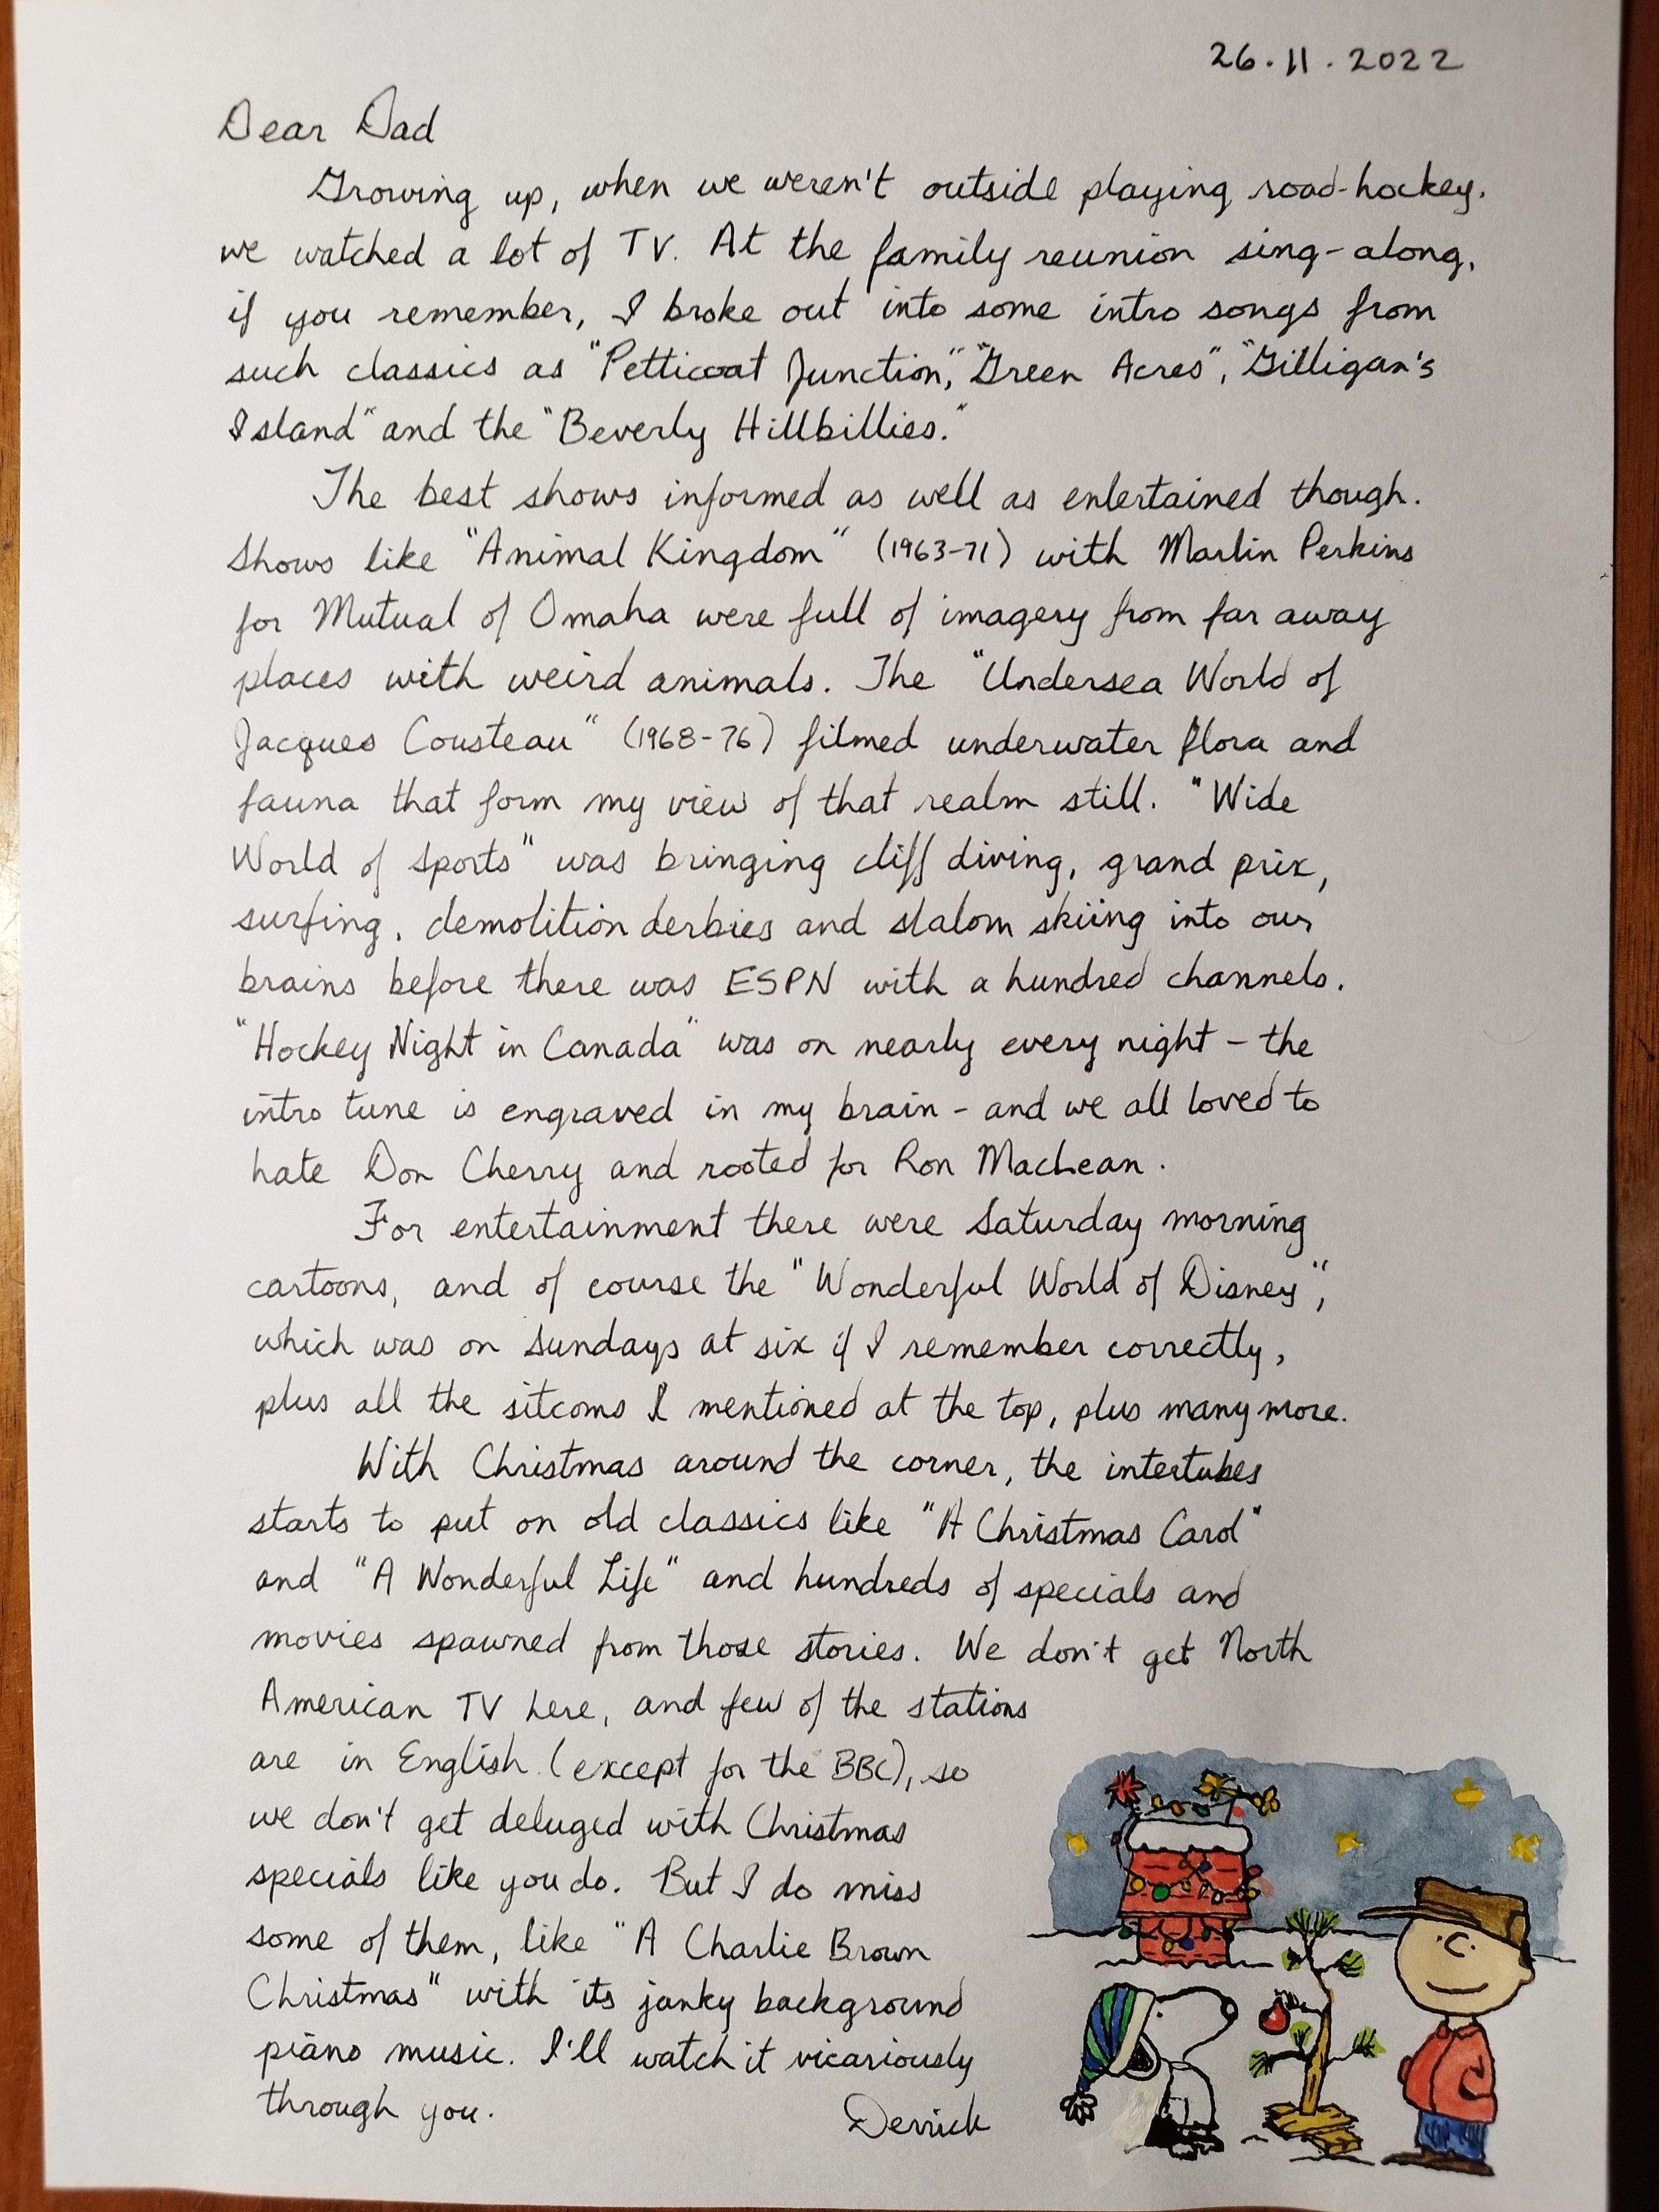 26.11.2022
Dear Dad
Growing up, when we weren't outside playing road-hockey,
we watched a lot of TV. At the family reunion sing-along,
if you remember, I broke out into some intro songs from
such classics as "Petticoat Junction," "Green Acres", "Gilligan's
Island" and the "Beverly Hillbillies."
The best shows informed as well as entertained though.
Shows like "Animal Kingdom" (1963-71) with Marlin Perkins
for Mutual of Omaha were full of imagery from far away
places with weird animals. The "Undersea World of
Jacques Cousteau" (1968-76) filmed underwater flora and
fauna that form my view of that realm still. "Wide
World of Sports" was bringing cliff diving, grand prix,
surfing, demolition derbies and slalom skiing into our
brains before there was ESPN with a hundred channels.
"Hockey Night in Canada" was on nearly every night - the
intro tune is engraved in my brain - and we all loved to
hate Don Cherry and rooted for Ron MacLean.
For entertainment there were Saturday morning
cartoons, and of course the "Wonderful World of Disney",
which was on Sundays at six if I remember correctly,
plus all the sitcoms I mentioned at the top, plus many more.
With Christmas around the corner, the intertubes
starts to put on old classics like "A Christmas Carol"
and "A Wonderful Life" and hundreds of specials and
movies spawned from those stories. We don't get North
American TV here, and few of the stations
are in English (except for the BBC), so
we don't get deluged with Christmas
specials like you do. But I do miss
some of them, like "A Charlie Brown
Christmas" with its janky background
piano music. I'll watch it vicariously
through you.
Derrick